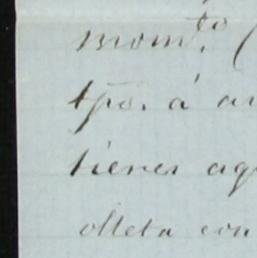 momto. (
tpo. á
tienes
olleta con